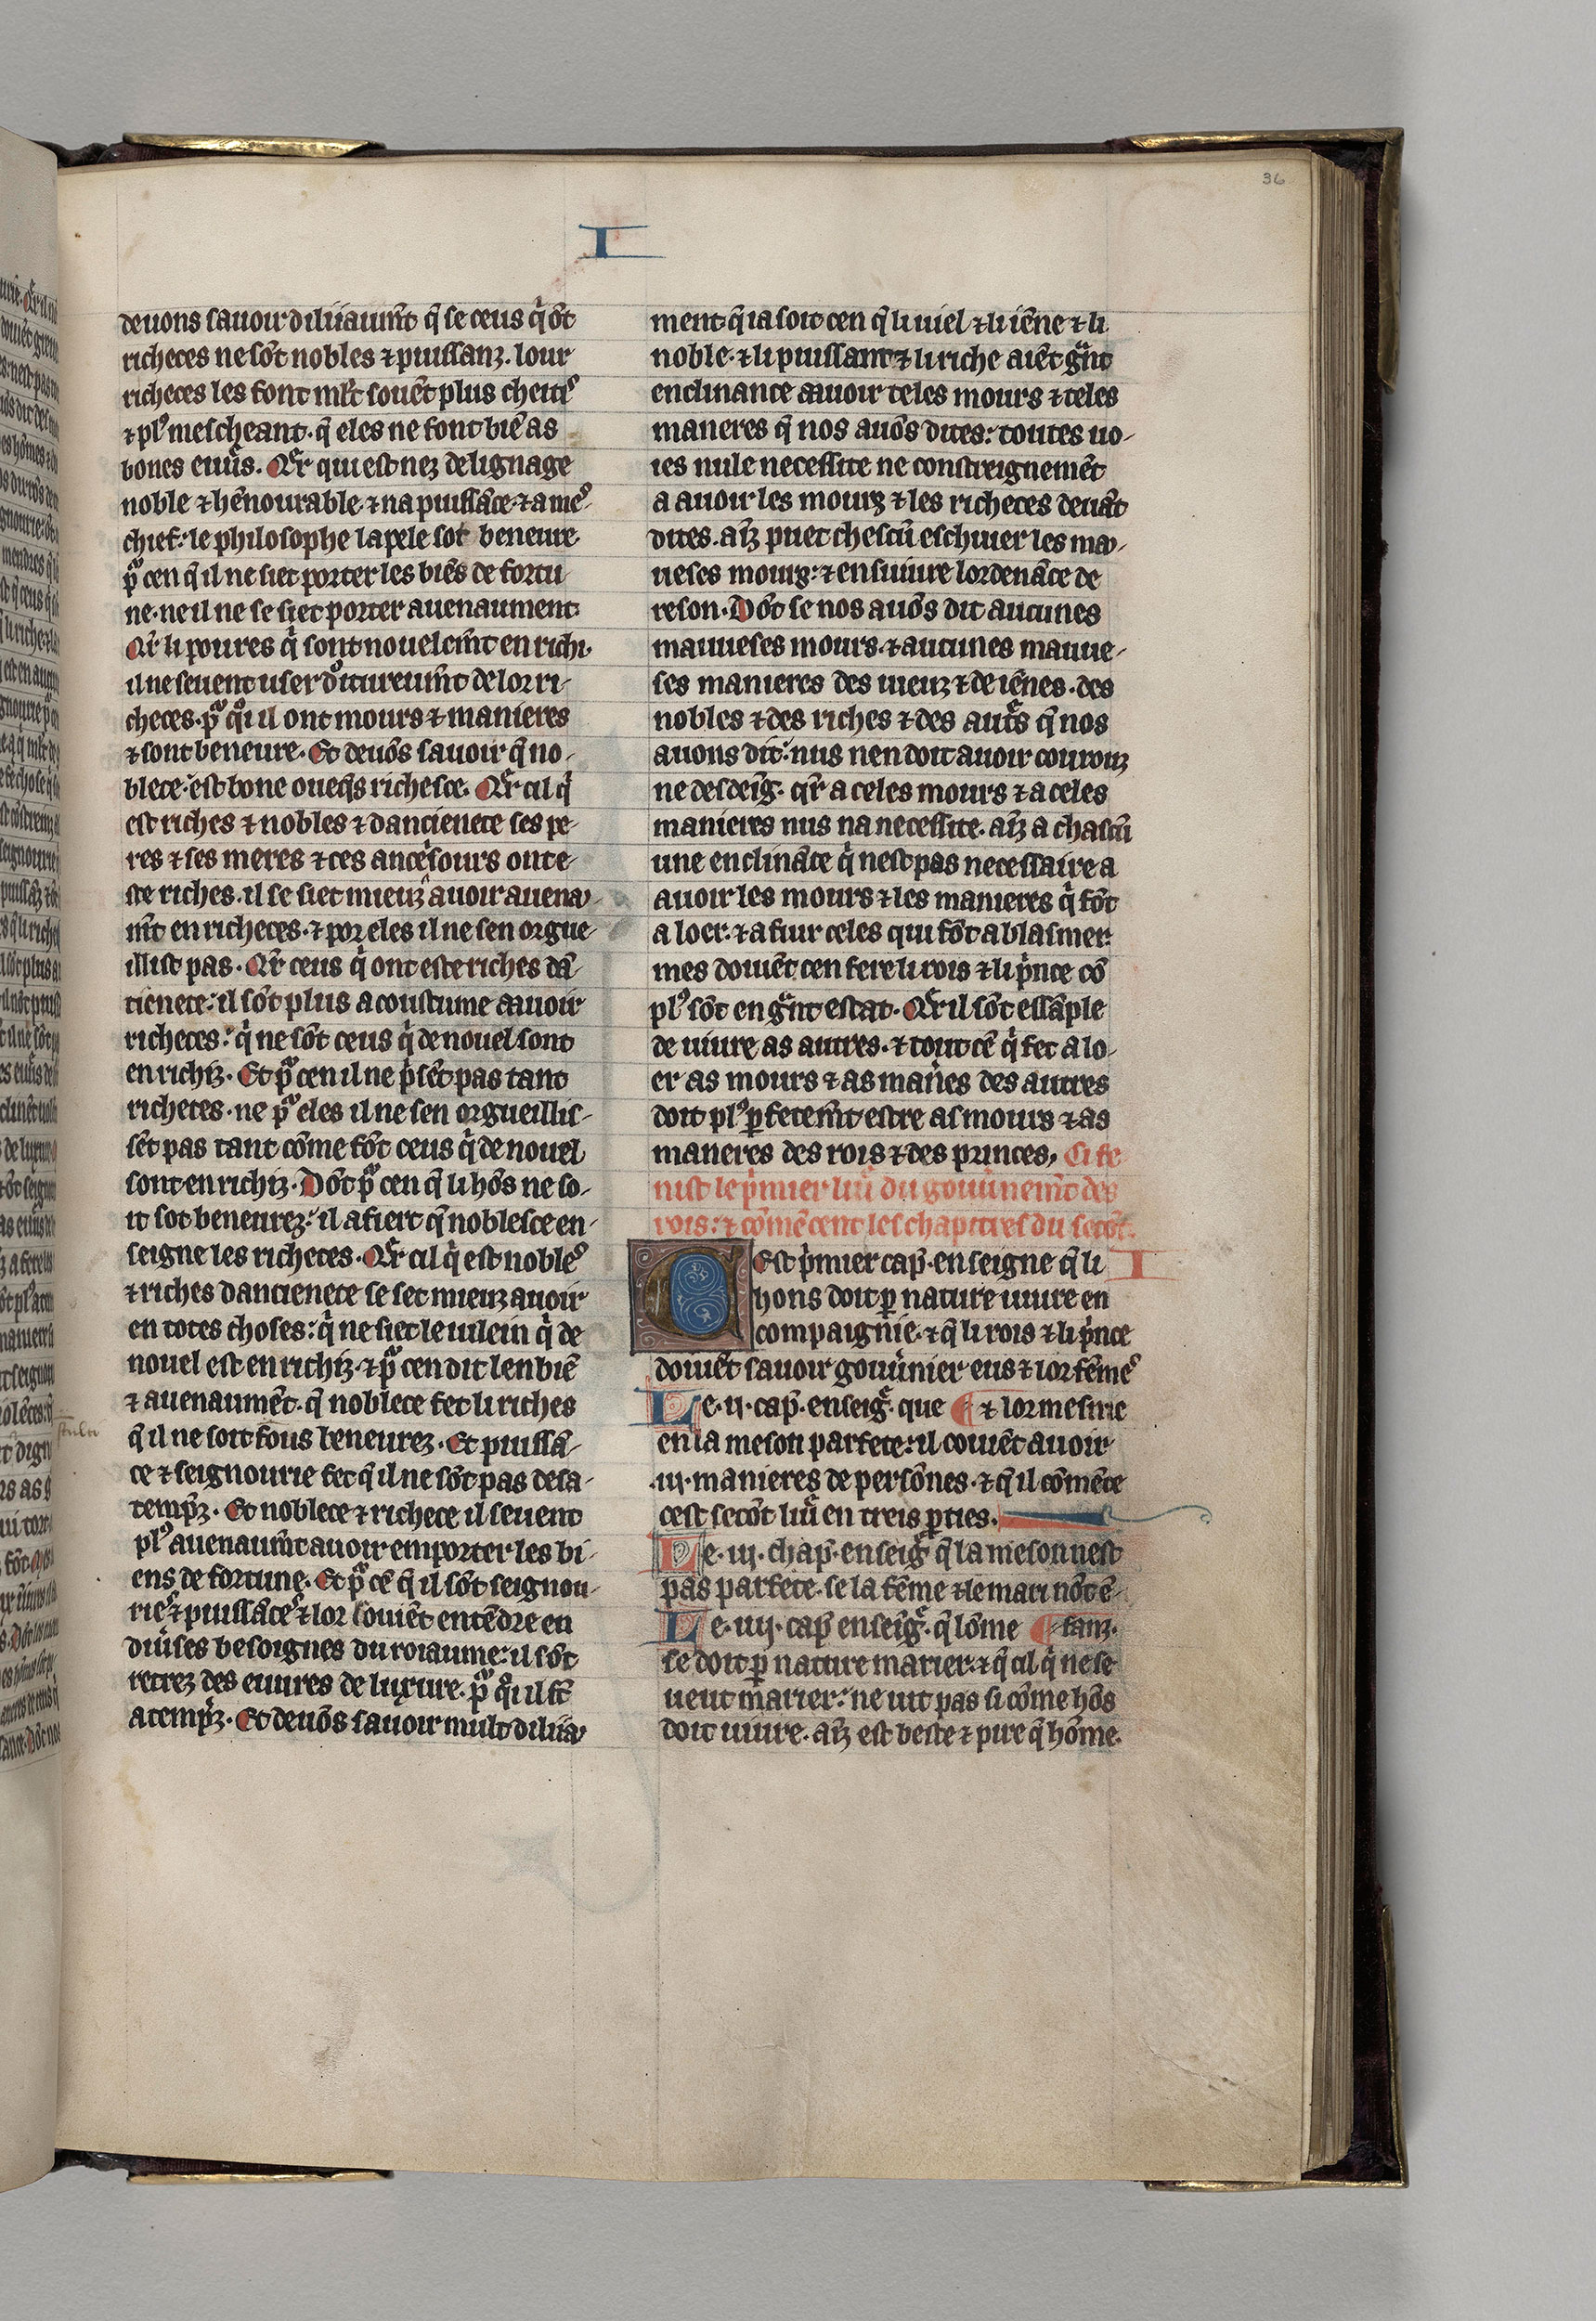 36
I
deuons sauoir diliiaum̃t q̃ se ceus q̉ õt
richeces ne sõt nobles ⁊ puissanz. lour
richeces les font ml̃t souẽt plus cheitis
⁊ plꝰ mescheant. q̃ eles ne font biẽ as
bones euur̃s. Q̃r qui est nez de lignage
noble ⁊ hẽnourable ⁊ na puissãce ⁊ a mes-
chief: le philosophe lapele sot beneure.
pᵃ cen q̃ il ne siet porter les biẽs de fortu-
ne. ne il ne se siet porter auenaument.
Q̃r li poures q̉ sont nouelem̃t enrichi.
il ne seuent user droitureum̃t de lor ri-
checes. pᵃ qͦi il ont mours ⁊ manieres
⁊ sont beneure. Et deuõs sauoir q̃ no-
blece est bone oueq̃s richesce. Q̃r cil q̉
est riches ⁊ nobles ⁊ dancienece ses pe-
res ⁊ ses meres ⁊ ces ancẽsours ont e-
ste riches. il se siet mieuz auoir auena-
m̃t en richeces. ⁊ por eles il ne sen orgue-
illist pas. Q̃r ceus q̉ ont este riches dã-
cienece: il sõt plus acoustume a auoir
richeces: q̉ ne sõt ceus q̉ de nouel sont
enrichiz. Et pᵃ cen il ne p̉sẽt pas tant
richeces. ne pᵃ eles il ne sen orgueillis-
sẽt pas tant cõme fõt ceus q̉ de nouel
sont enrichiz. Dõt pᵃ cen q̃ li hõs ne so-
it sot beneurez: il afiert q̃ noblesce en-
seigne les richeces. Q̃r cil q̉ est nobles
⁊ riches dancienece se set mieuz auoir
en totes choses: q̉ ne siet le uilein q̉ de
nouel est enrichiz. ⁊ pᵃ cen dit len biẽ
⁊ auenaumẽt. q̃ noblece fet li riches
q̃ il ne soit fous beneurez. Et puissã-
ce ⁊ seignourie fet q̃ il ne sõt pas desa-
temp̃z. Et noblece ⁊ richece il seuent
plꝰ auenaum̃t auoir em porter les bi-
ens de fortune. Et pᵃ cẽ q̃ il sõt seignou-
ries ⁊ puissãces ⁊ lor couiẽt entẽdre en
diũses besoignes du roiaume: il sõt
retrez des euures de luxure. pᵃ qͦi il st̃
atemp̉z. Et deuõs sauoir mult diliia-
ment q̃ ia soit cen q̃ li uiel ⁊ li iẽne ⁊ li
noble. ⁊ li puissant ⁊ li riche aiẽt gᵃnt
enclinance a auoir teles mours ⁊ teles
maneres q̃ nos auõs dites: toutes uo-
ies nule necessite ne constreignemẽt
a auoir les mourz ⁊ les richeces deuãt
dites. aĩz puet chescũ eschiuer les ma-
ueses mourz: ⁊ ensuiure lordenãce de
reson. Dõt se nos auõs dit aucunes
mauueses mours. ⁊ aucunes mauue-
ses manieres des uieuz ⁊ de iẽnes. des
nobles ⁊ des riches ⁊ des aut̃s q̃ nos
auons dit: nus nen doit auoir courouz
ne desdeĩg. q̃r a celes mours ⁊ a celes
manieres nus na necessite. aĩz a chascũ
une enclinãce q̉ nest pas necessaire a
auoir les mours ⁊ les manieres q̉ fõt
a loer. ⁊ a fuir celes qui fõt a blasmer.
mes doiuẽt cen fere li rois ⁊ li p̉nce cõ
plꝰ sõt en gᵃnt estat. Q̃r il sõt essãple
de uiure as autres. ⁊ tout cẽ q̉ fet a lo-
er as mours ⁊ as mañes des autres
doit plꝰ ꝑfetem̃t estre as mours ⁊ as
maneres des rois ⁊ des princes, Ci fe
nist le p̉mier liũ du gouũnem̃t des
rois: ⁊ cõmẽcent les chapitres du secõt.
Cest p̉mier cap̃. enseigne q̃ li I
hons doit ꝑ nature uiure en
compaignie. ⁊ q̃ li rois ⁊ li p̉nce
doiuẽt sauoir gouũnier eus ⁊ lor fẽmes
Le .ij. cap̃. enseig̃. que ¶ ⁊ lor mesme
en la meson parfete: il couiẽt auoir
.iij. manieres de persõnes. ⁊ q̃ il cõmẽce
cest secõt liũ en treis ꝑties.
Le .iij. chap̃. enseig̃ q̃ la meson nest
pas parfete. se la fẽme ⁊ le mari nõt ẽ-
Le .iiij. cap̃ enseig̃. q̃ lõme ¶ fanz.
se doit ꝑ nature marier. ⁊ q̃ cil q̉ ne se
ueut marier: ne uit pas si cõme hõs
doit uiure. aĩz est beste ⁊ pire q̃ hõme.